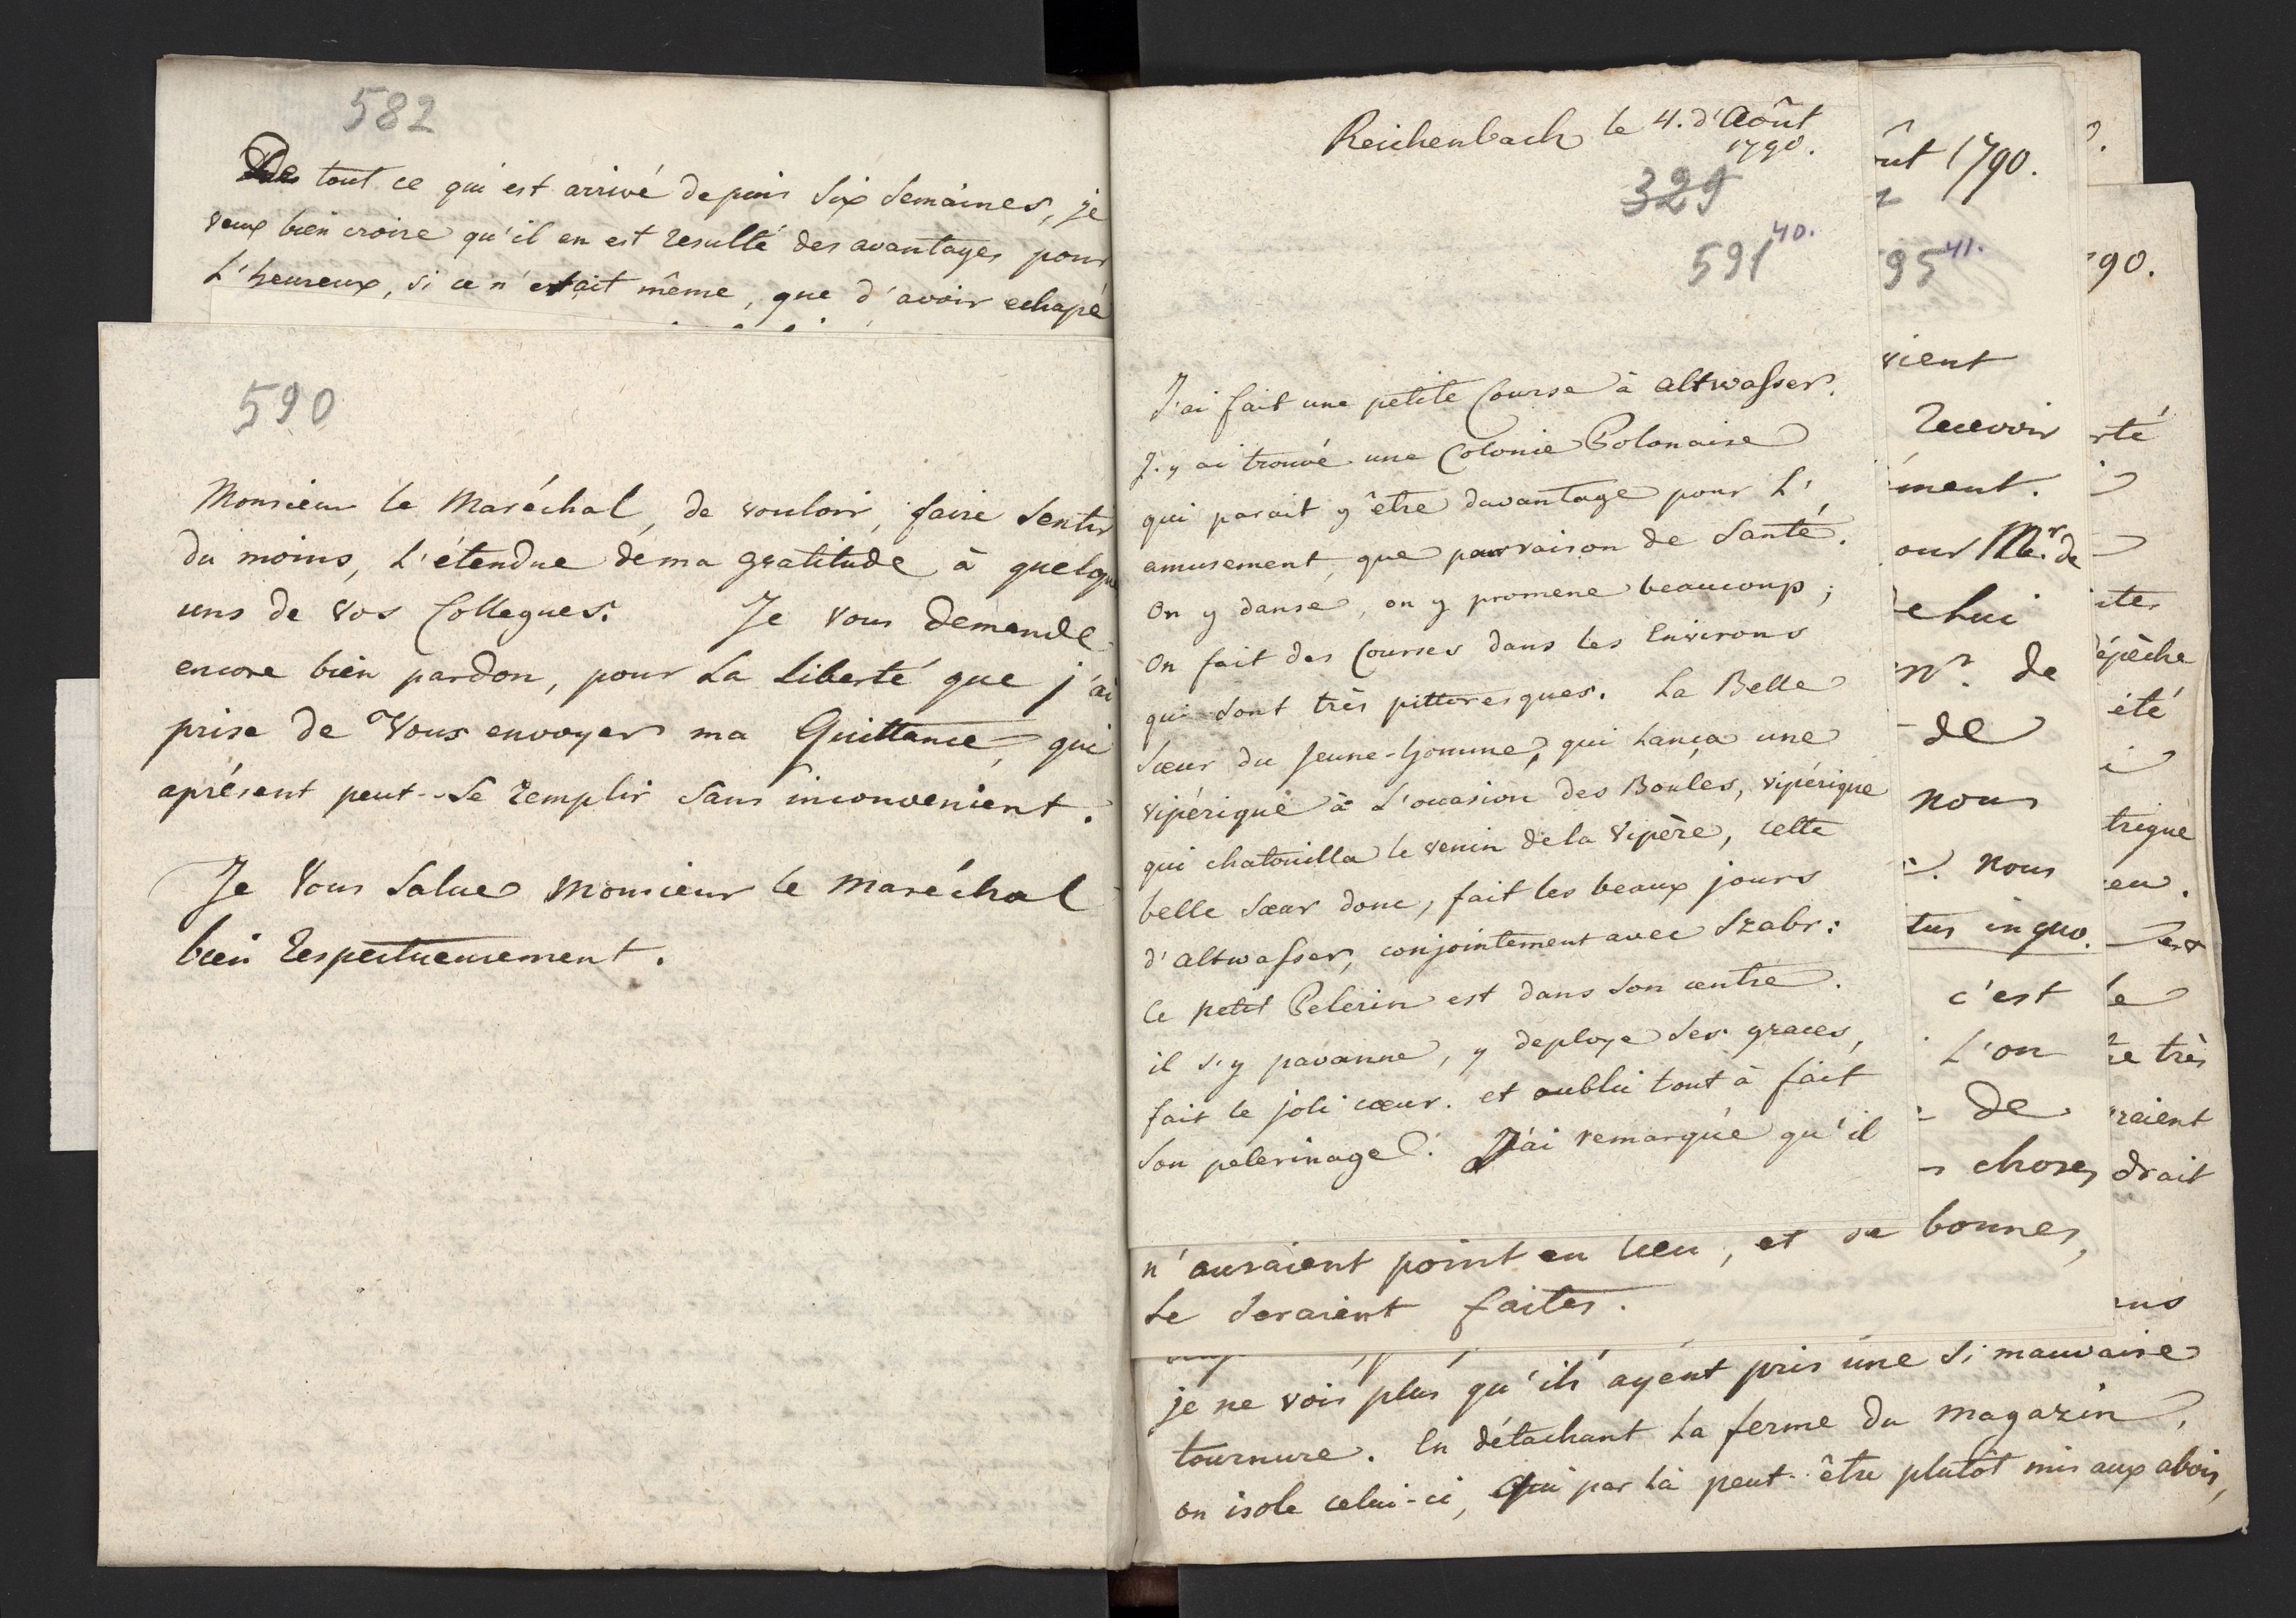 582
De tout ce qui est arrivé depuis six semaines, je
veux bien croire qu'il en est resulté des avantages pour
L'heureux, si ce n'etait même, que d'avoir echapé
590
Monsieur le Maréchal, de vouloir, faire sentir
du moins, l'étendue de ma gratitude à quelqu
uns de vos Collegues. Je vous demande
encore bien pardon, pour la liberté que j'ai
prise de Vous envoyer ma Quittance, qui
aprésent peut-se remplir sans inconvenient.
Je Vous salue Monsieur le maréchal
bien respectueusement.
Reichenbach le 4. d'Août
1790.
329
40.
591
J'ai fait une petite Course à altwasser.
J'y ai trouvé une Colonie Polonaise
qui parait y être davantage pour L'
amusement, que pour raison de Santé.
On y danse, on y promene beaucoup;
On fait des Courses dans les Environs
qui sont très pittoresques. La Belle
Sœur du Jeune-homme, qui lança une
vipérique à L'occasion des Boules, vipérique
qui chatouilla le venin de la Vipère, cette
belle Sœur donc, fait les beaux jours
d'altwasser, conjointement avec Szabr:
Ce petit Pelerin est dans son centre.
il s'y pavanne, y deploye ses graces,
fait le joli cœur. et oublie tout à fait
son pelerinage. J'ai remarqué qu'il
ût 1790.
95 41.
vient
recevoir
ment.
our Mr. de
e lui
de
de
nous
nous
tus in quo.
c'est
L'on
de
choses
n'auraient point eu lieu, et de bonnes,
se seraient faites.
90.
rté
épêche
été
trigue
eu.
le
te très
raient
drait
je ne vois plus qu'ils ayent pris une si mauvaise
tournure. En détachant la ferme du magazin,
on isole celui-ci, qui par là peut-être plutôt mis aux abois,